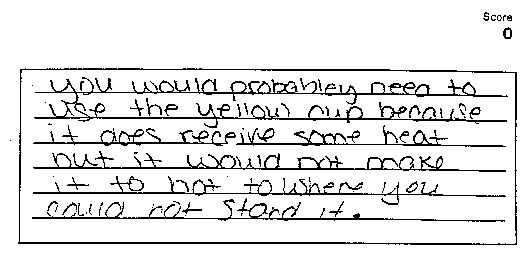 Score
0
you would probabley need to
use the yellow cup because
it does receive some heat
but it would not make
it to hot to where you
could not stand it.